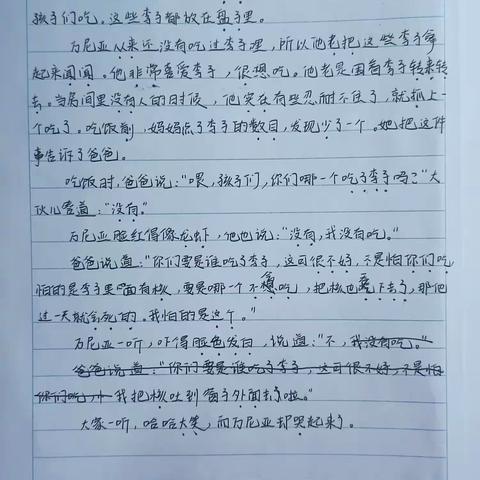 孩子们吃。这些李子都放在盘子里。
万尼亚从来还没有吃过李子哩，所以他老把这些李子拿
起来闻闻。他非常喜爱李子，很想吃。他老是围着李子转来转
去。当房间里没有人的时候，他实在有些忍耐不住了，就抓上一
个吃了。吃饭前，妈妈点了李子的数目，发现少了一个。她把这件
事告诉了爸爸。
吃饭时，爸爸说："喂，孩子们，你们哪一个吃了李子吗？"大
伙儿答道："没有。"
万尼亚脸红得像龙虾，他也说："没有，我没有吃。"
爸爸说道："你们要是谁吃了李子，这可很不好，不是怕你们吃
怕的是李子里面有核，要是哪一个不会吃，把核也吞下去了，那他
过一天就会死的。我怕的是这个。"
万尼亚一听，吓得脸色发白，说道："不，我没有吃。"
爸爸说道："你们要是谁吃了李子，这可很不好，不是怕
你们吃，我把核吐到窗子外面去了啦。"
大家一听，哈哈大笑，而万尼亚却哭起来了。